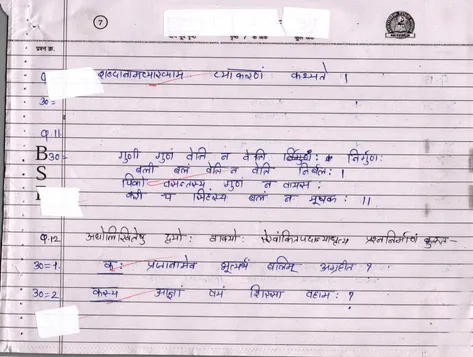 7
प्रश्न क्र.
शब्दानामव्याख्याम व्याकरणं कथ्यते ।
उ०=
Q.11
उ०= गुणी गुणं वेत्ति न वेत्ति निर्गुणः
बली बलं वेत्ति न वेत्ति निर्बलः ।
पिको वसन्तस्य गुणं न वायसः
करी च सिंहस्य बलं न मूषकः ।।
Q.12 अधोलिखितेषु द्वयोः वाक्योः रेखांकितपदान्याधृत्य प्रश्ननिर्माणं कुरुत-
उ०=1. कः प्रजानामेव भूत्यर्थं बलिम् अग्रहीत ?
उ०=2 कस्य आज्ञां वयं शिरसा वहामः ?